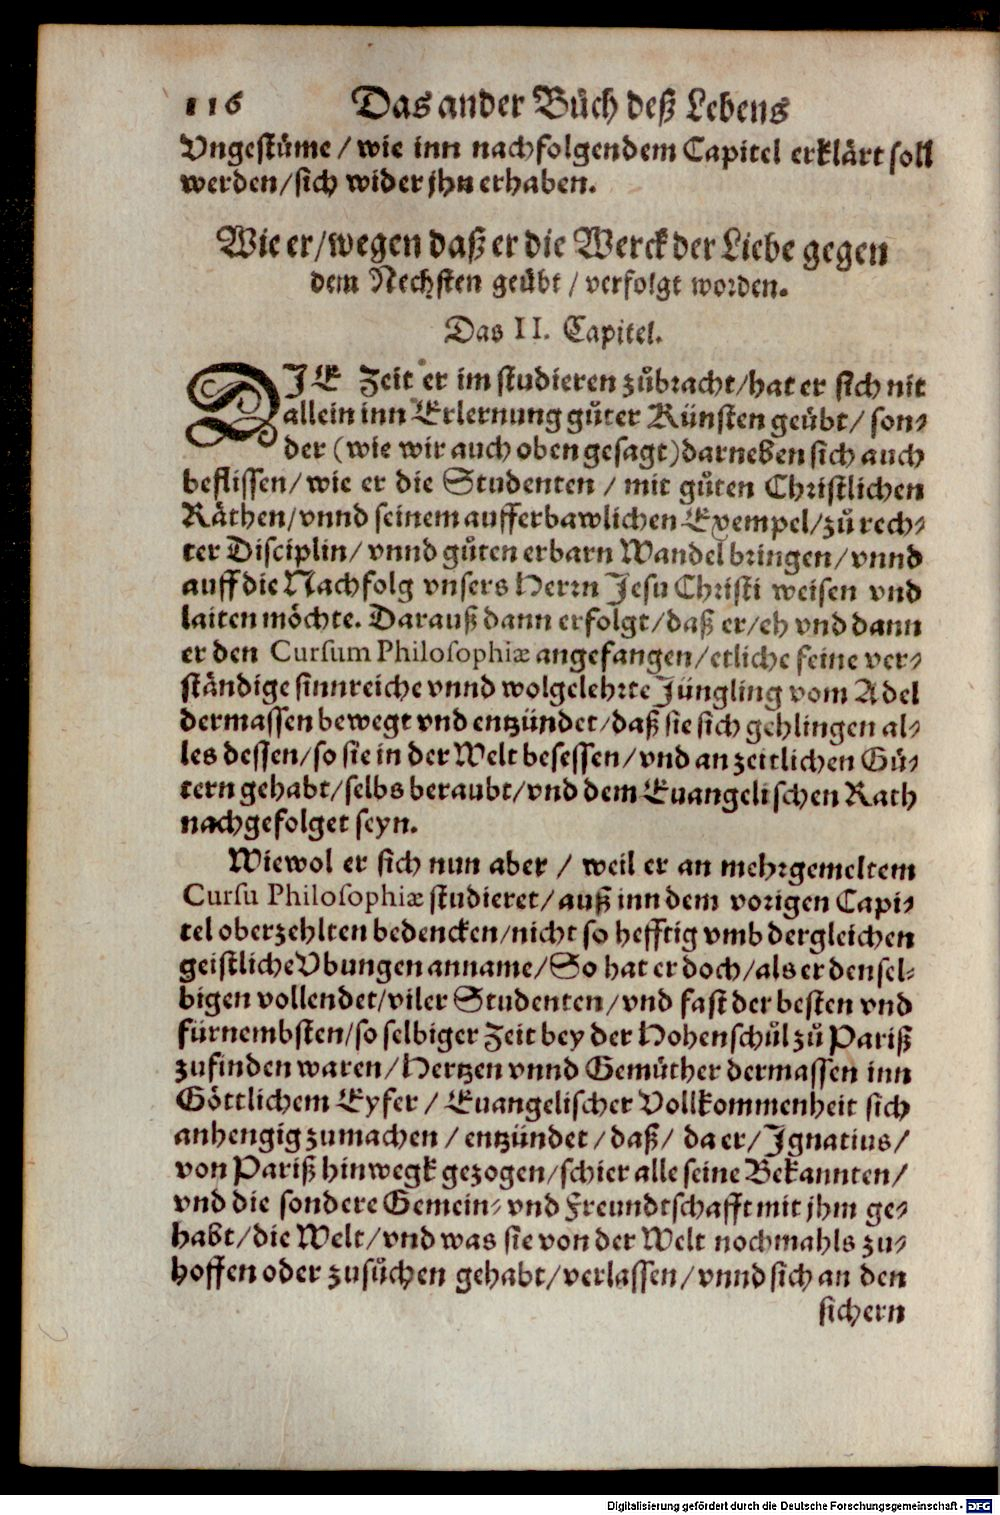 116 Das ander Bůch deß Lebens
Vngestüme / wie inn nachfolgendem Capitel erklärt soll
werden / sich wider jhn erhaben.
Wie er / wegen daß er die Werck der Liebe gegen
dem Nechsten geübt / verfolgt worden.
Das II. Capitel.
DJE Zeit er im studieren zůbracht / hat er sich nit
allein inn Erlernung gůter Künsten geübt / son-
der (wie wir auch oben gesagt) darneben sich auch
beflissen / wie er die Studenten / mit gůten Christlichen
Räthen / vnnd seinem aufferbawlichen Exempel / zů rech-
ter Disciplin / vnnd gůten erbarn Wandel bringen / vnnd
auff die Nachfolg vnsers Herrn Jesu Christi weisen vnd
laiten möchte. Darauß dann erfolgt / daß er / eh vnd dann
er den Cursum Philosophiæ angefangen / etliche feine ver-
ständige sinnreiche vnnd wolgelehrte Jüngling vom Adel
dermassen bewegt vnd entzündet / daß sie sich gehlingen al-
les dessen / so sie in der Welt besessen / vnd an zeitlichen Gü-
tern gehabt / selbs beraubt / vnd dem Euangelischen Rath
nachgefolget seyn.
Wiewol er sich nun aber / weil er an mehrgemeltem
Cursu Philosophiæ studieret / auß inn dem vorigen Capi-
tel oberzehlten bedencken / nicht so hefftig vmb dergleichen
geistliche Vbungen anname / So hat er doch / als er densel-
bigen vollendet / viler Studenten / vnd fast der besten vnd
fürnembsten / so selbiger Zeit bey der Hohenschůl zů Pariß
zufinden waren / Hertzen vnnd Gemüther dermassen inn
Göttlichem Eyfer / Euangelischer Vollkommenheit sich
anhengig zumachen / entzündet / daß / da er / Jgnatius /
von Pariß hinwegk gezogen / schier alle seine Bekannten /
vnd die sondere Gemein- vnd Freundtschafft mit jhm ge-
habt / die Welt / vnd was sie von der Welt nochmahls zu-
hoffen oder zusůchen gehabt / verlassen / vnnd sich an den
sichern
Digitalisierung gefördert durch die Deutsche Forschungsgemeinschaft - DFG